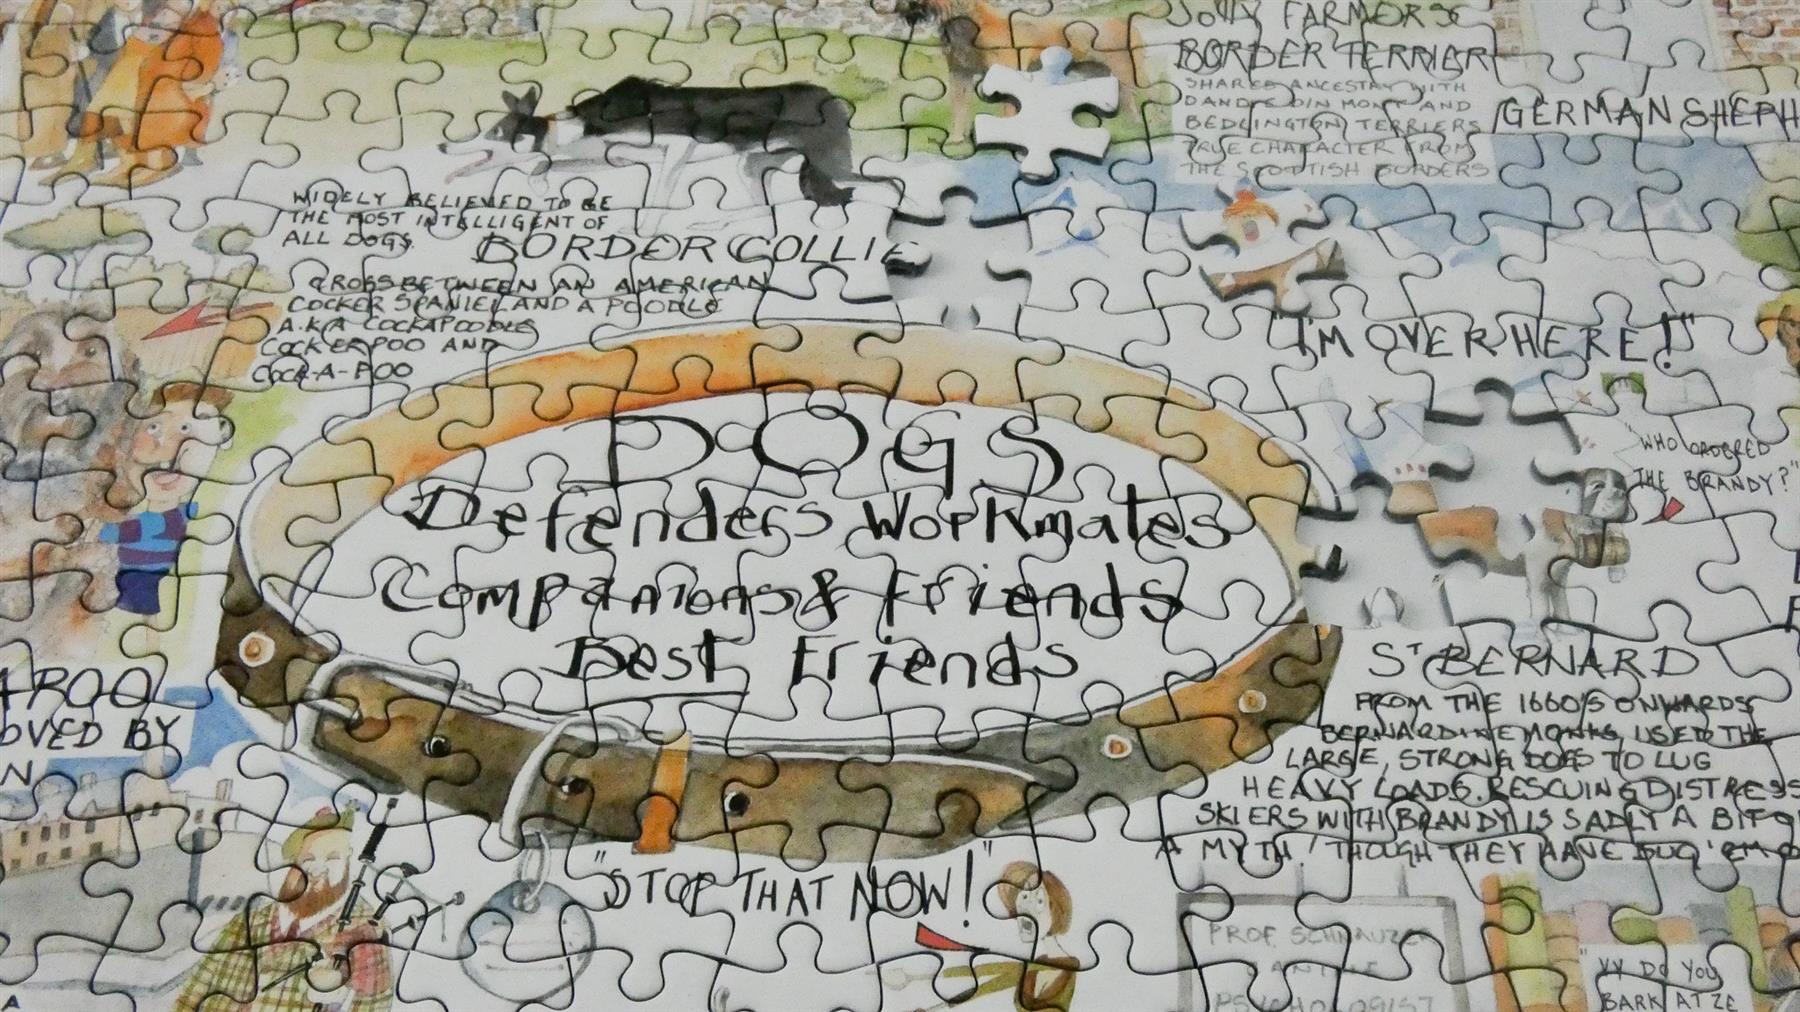 JOLLY FARMERS
BORDER TERRIER
SHARES ANCESTRY WITH
DANDIE DINMONT AND
BEDLINGTON TERRIERS
TRUE CHARACTER FROM
THE SCOTTISH BORDERS
GERMAN SHEPH
WIDELY BELIEVED TO BE
THE MOST INTELLIGENT OF
ALL DOGS.
BORDER COLLIE
CROSS BETWEEN AN AMERICAN
COCKER SPANIEL AND A POODLE
A.K.A COCKAPOODLES
COCKERPOO AND
COCK-A-POO
"I'M OVER HERE!"
"WHO ORDERED
THE BRANDY?"
DOGS
Defenders Workmates
Companions & Friends
Best Friends
APOO
OVED BY
N
ST BERNARD
FROM THE 1660'S ONWARDS
BERNARDINE MONKS USED THE
LARGE, STRONG DOGS TO LUG
HEAVY LOADS. RESCUING DISTRESS
SKIERS WITH BRANDY IS SADLY A BIT O
A MYTH! THOUGH THEY HAVE DUG 'EM O
"STOP THAT NOW!"
PROF. SCHNAUZER
CANINE
PSYCHOLOGIST
"VY DO YOU
BARK AT ZE
A